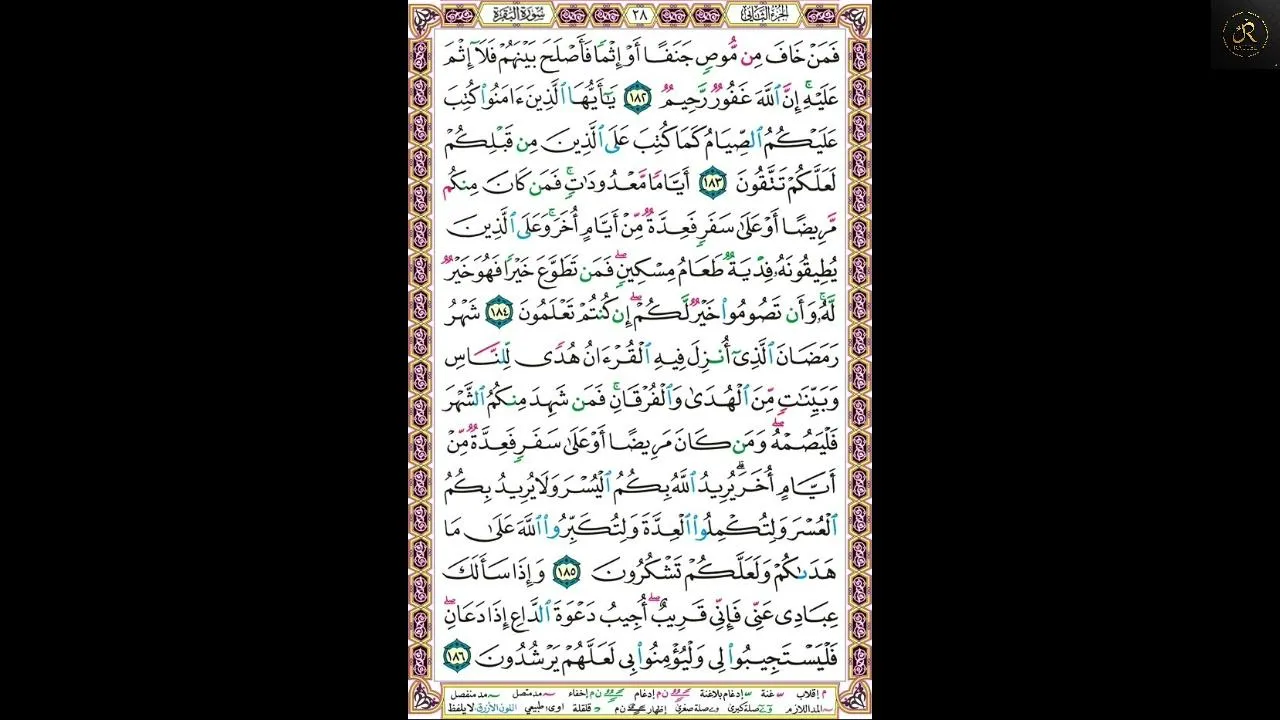 الجزء الثاني ٢٨ سورة البقرة
فَمَنْ خَافَ مِن مُّوصٍ جَنَفًا أَوْ إِثْمًا فَأَصْلَحَ بَيْنَهُمْ فَلَآ إِثْمَ
عَلَيْهِ ۚ إِنَّ ٱللَّهَ غَفُورٌ رَّحِيمٌ ١٨٢ يَـٰٓأَيُّهَا ٱلَّذِينَ ءَامَنُوا۟ كُتِبَ
عَلَيْكُمُ ٱلصِّيَامُ كَمَا كُتِبَ عَلَى ٱلَّذِينَ مِن قَبْلِكُمْ
لَعَلَّكُمْ تَتَّقُونَ ١٨٣ أَيَّامًا مَّعْدُودَٰتٍ ۚ فَمَن كَانَ مِنكُم
مَّرِيضًا أَوْ عَلَىٰ سَفَرٍ فَعِدَّةٌ مِّنْ أَيَّامٍ أُخَرَ ۚ وَعَلَى ٱلَّذِينَ
يُطِيقُونَهُۥ فِدْيَةٌ طَعَامُ مِسْكِينٍ ۖ فَمَن تَطَوَّعَ خَيْرًا فَهُوَ خَيْرٌ
لَّهُۥ ۚ وَأَن تَصُومُوا۟ خَيْرٌ لَّكُمْ ۖ إِن كُنتُمْ تَعْلَمُونَ ١٨٤ شَهْرُ
رَمَضَانَ ٱلَّذِىٓ أُنزِلَ فِيهِ ٱلْقُرْءَانُ هُدًى لِّلنَّاسِ
وَبَيِّنَـٰتٍ مِّنَ ٱلْهُدَىٰ وَٱلْفُرْقَانِ ۚ فَمَن شَهِدَ مِنكُمُ ٱلشَّهْرَ
فَلْيَصُمْهُ ۖ وَمَن كَانَ مَرِيضًا أَوْ عَلَىٰ سَفَرٍ فَعِدَّةٌ مِّنْ
أَيَّامٍ أُخَرَ ۗ يُرِيدُ ٱللَّهُ بِكُمُ ٱلْيُسْرَ وَلَا يُرِيدُ بِكُمُ
ٱلْعُسْرَ وَلِتُكْمِلُوا۟ ٱلْعِدَّةَ وَلِتُكَبِّرُوا۟ ٱللَّهَ عَلَىٰ مَا
هَدَىٰكُمْ وَلَعَلَّكُمْ تَشْكُرُونَ ١٨٥ وَإِذَا سَأَلَكَ
عِبَادِى عَنِّى فَإِنِّى قَرِيبٌ ۖ أُجِيبُ دَعْوَةَ ٱلدَّاعِ إِذَا دَعَانِ ۖ
فَلْيَسْتَجِيبُوا۟ لِى وَلْيُؤْمِنُوا۟ بِى لَعَلَّهُمْ يَرْشُدُونَ ١٨٦
م إقلاب غنة إدغام بلاغنة ن م إدغام ن م إخفاء مد متصل مد منفصل
المد اللازم صلة كبرى صلة صغرى إظهار ن م قلقلة اوى: طبيعي اللون الأزرق لا يلفظ